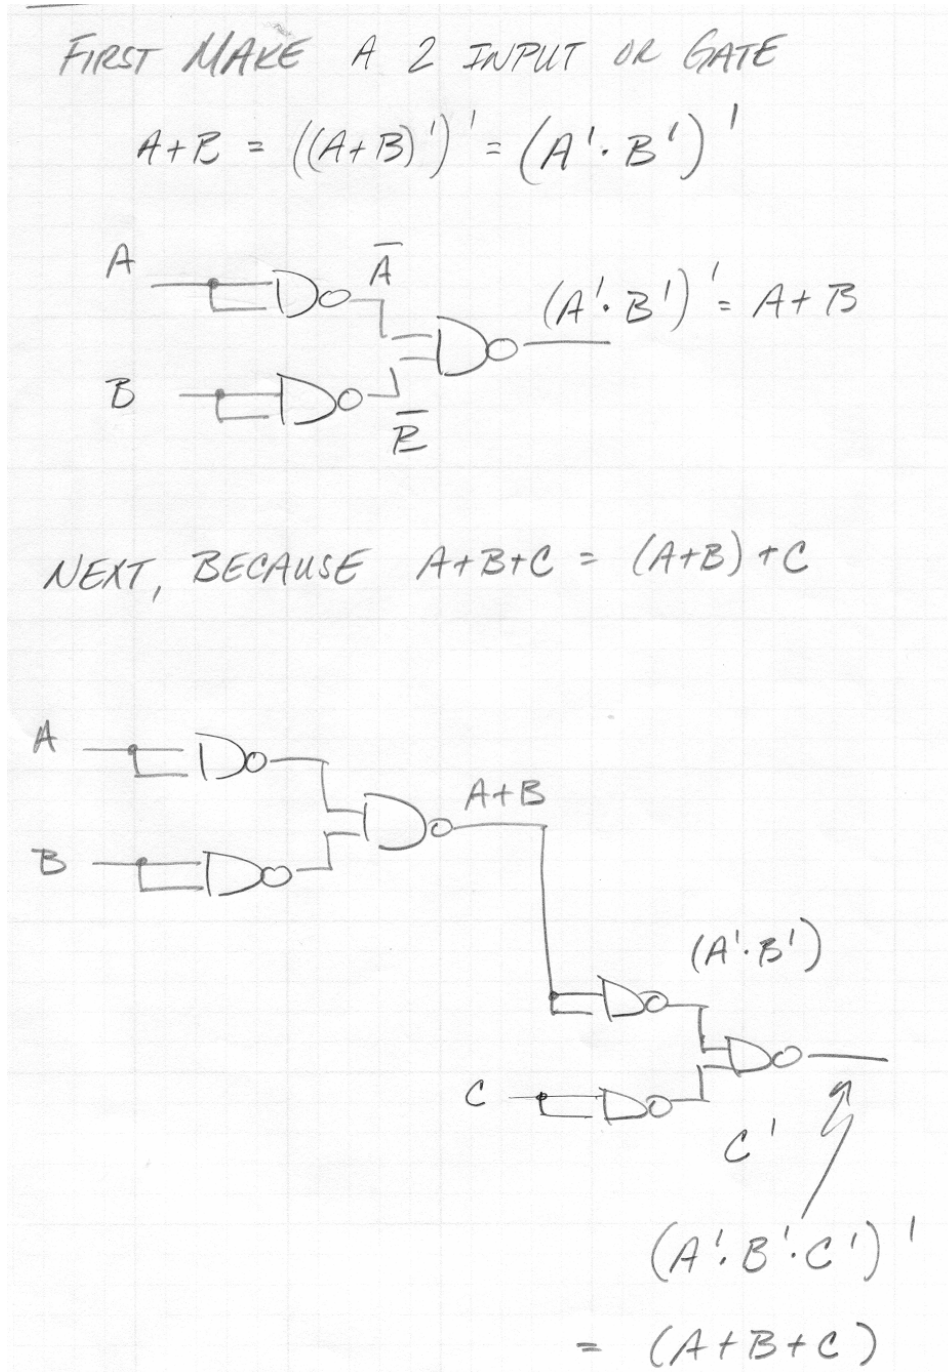 FIRST MAKE A 2 INPUT OR GATE
A+B = ((A+B)')' = (A'·B')'
A
A̅
(A'·B')' = A+B
B
B̅
NEXT, BECAUSE A+B+C = (A+B)+C
A
A+B
B
(A'·B')
C
C'
(A'·B'·C')'
= (A+B+C)